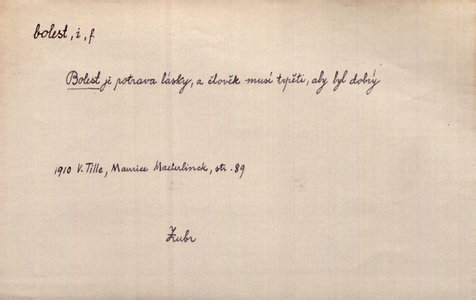 bolest, i, f
Bolest je potrava lásky, a člověk musí trpěti, aby byl dobrý
1910 V. Tille, Maurice Maeterlinck, str. 89
Zubr